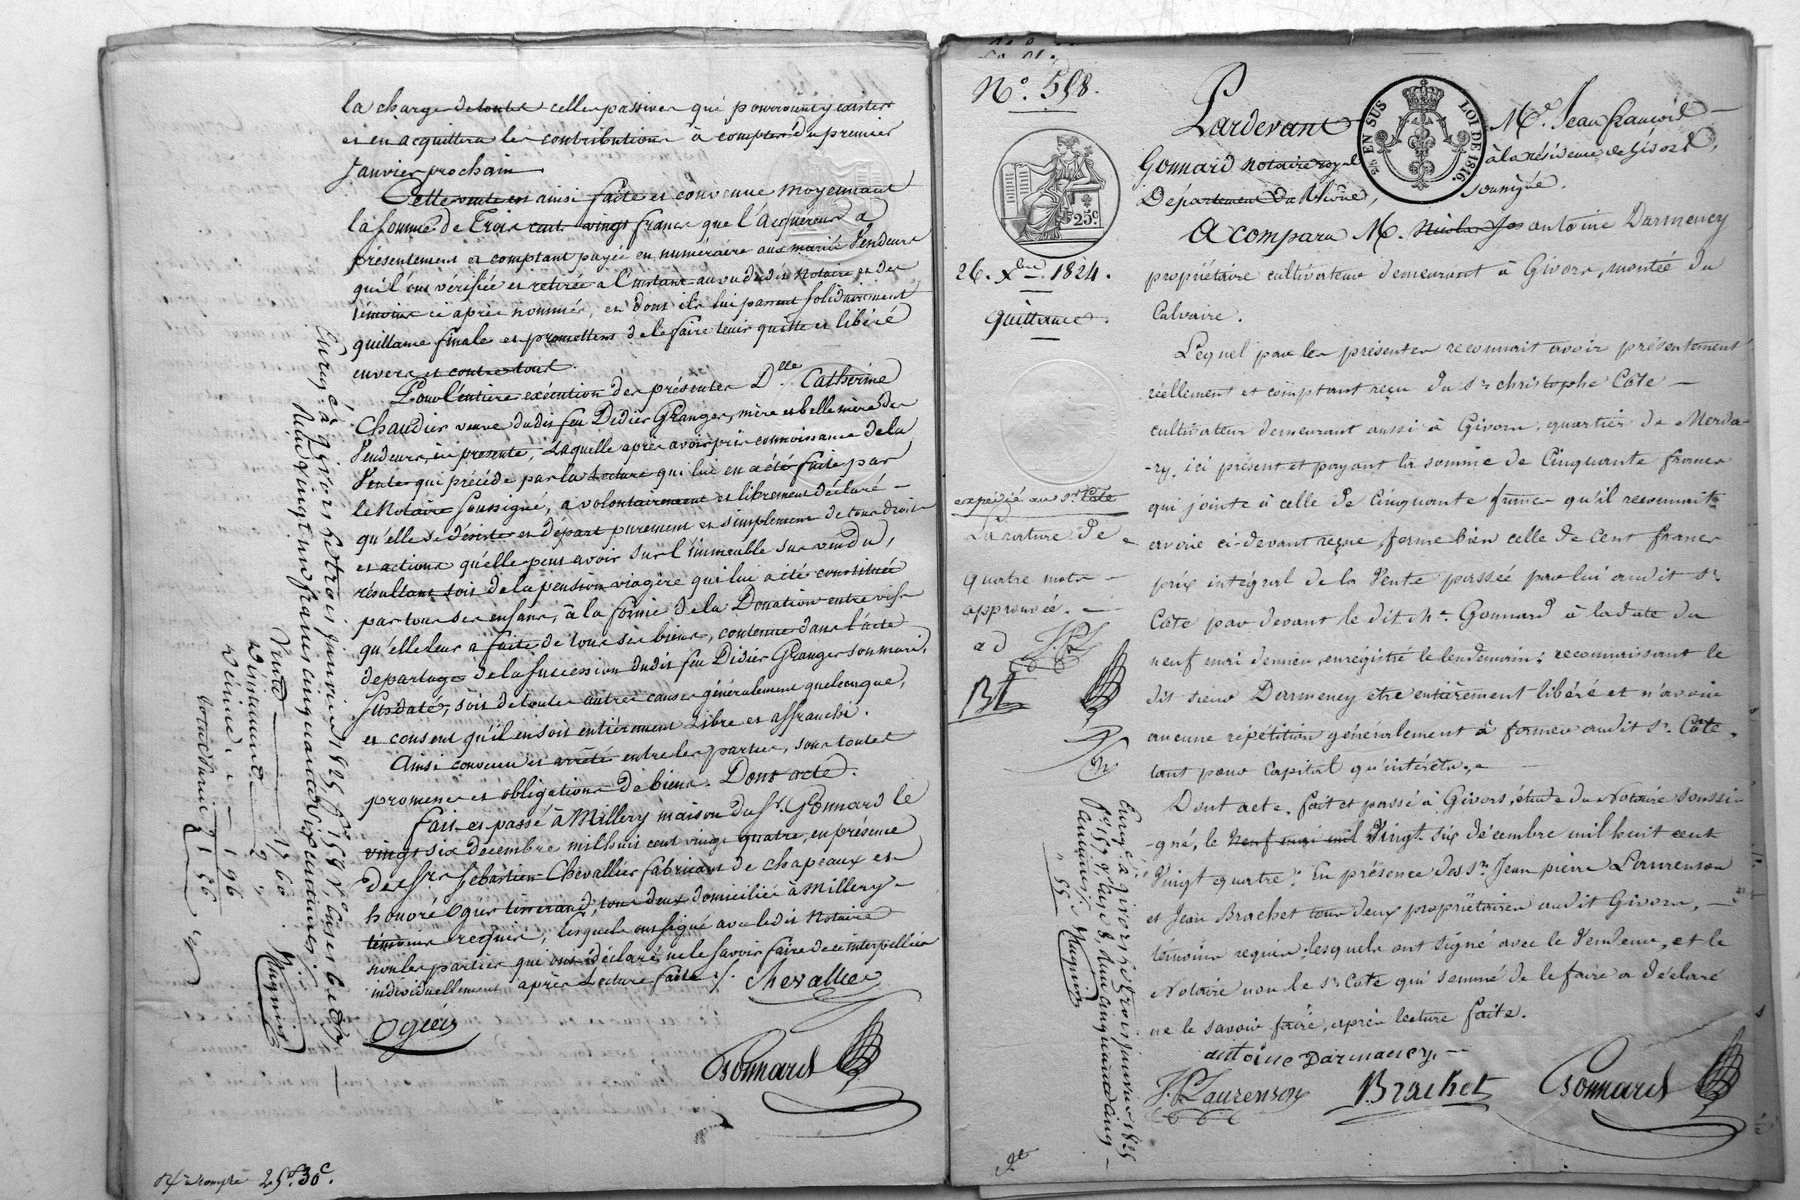 la charge de toutes celles passives qui pourraient y exister
et en acquittera les contributions à compter du premier
Janvier prochain
Cette vente est ainsi faite et convenue moyennant
la somme de Trois cent vingt francs que l'Acquéreur a
présentement et comptant payée en numéraire aux mariés Vendeurs
qui l'ont vérifiée et retirée à l'instant au vu dudit Notaire et des
témoins ci après nommés, et dont ils lui passent solidairement
quittance finale et promettent de le faire tenir quitte et libéré
envers et contre tout.
Pour l'entière exécution des présentes Dlle Catherine
Chaudier veuve dudit feu Didier Granger, mère et belle mère des
Vendeurs, ici présente, Laquelle après avoir pris connoissance de la
Vente qui précède par la Lecture qui lui en a été faite par
le Notaire soussigné, a volontairement et librement déclaré
qu'elle se désiste et départ purement et simplement de tous droits
et actions qu'elle peut avoir sur l'immeuble sus vendu,
résultant soit de la pension viagère qui lui a été constituée
par tous ses enfans, à la forme de la Donation entre vifs
qu'elle leur a faite de tous ses biens, contenue dans l'acte
de partage de la succession dudit feu Didier Granger son mari,
susdaté, soit de toute autres causes généralement quelconque,
et consent qu'il en soit entièrement Libre et affranchi.
Ainsi convenu et arrêté entre les parties, sous toutes
promesses et obligations de biens. Dont acte.
Fait et passé à Millery maison du Sr. Gonnard le
vingt six décembre mil huit cent vingt quatre, en présence
des Srs Sébastien Chevallier fabricant de chapeaux et
honoré Ogier tisserand, tous deux domiciliés à Millery
témoins requis, lesquels ont signé avec ledit Notaire
non les parties qui ont déclaré ne le savoir faire de ce interpellées
individuellement après Lecture faite ./. Chevallier
Ogier
Gonnard
Enregé à givors le trois janvier 1825, fo 158 Vo cases
Reçu vingt un francs cinquante six centimes.
Vente 17 60
Décime 1 96
25f. 36c
No. 598.
26. Xbre 1824.
Quittance.
expédié au Sr. Côte
La rature de
quatre mots
approuvée.
a D
J.P.L
Bt
25c
2es EN SUS LOI DE 1816.
Pardevant Me. Jean françois
Gonnard notaire royal à la résidence de Givors,
Département du Rhône, soussigné.
A comparu M. Nicolas Jos antoine Darmency
propriétaire cultivateur demeurant à Givors, montée du
Calvaire.
Lequel par les présentes reconnait avoir présentement
réellement et comptant reçu du Sr christophe Côte
cultivateur demeurant aussi à Givors, quartier de Merda-
-ry, ici présent et payant la somme de Cinquante francs
qui jointe à celle de Cinquante francs qu'il reconnait
avoir ci-devant reçue, forme bien celle de cent francs
prix intégral de la Vente passée par lui audit Sr.
Côte par devant le dit Me. Gonnard à la date du
neuf mai dernier, enregistré le lendemain; reconnaissant le
dit sieur Darmency etre entièrement libéré et n'avoir
aucune répétition généralement à former audit Sr. Côte,
tant pour Capital qu'intérêts.
Dont acte, fait et passé à Givors, étude du Notaire soussi-
-gné, le neuf mai mil Vingt six décembre mil huit cent
Vingt quatre. En présence des Srs Jean pierre Laurenson
et Jean Brachet tous deux propriétaires audit Givors,
témoins requis, lesquels ont signé avec le Vendeur, et le
Notaire non le Sr. Côte qui sommé de le faire a déclaré
ne le savoir faire, après lecture faite.
antoine Darmancy
J. P. Laurenson
Brachet
Gonnard
Enregé à givors le trois janvier 1825
fo 157 Vo case 8, reçu cinquante cinq
centimes.
55